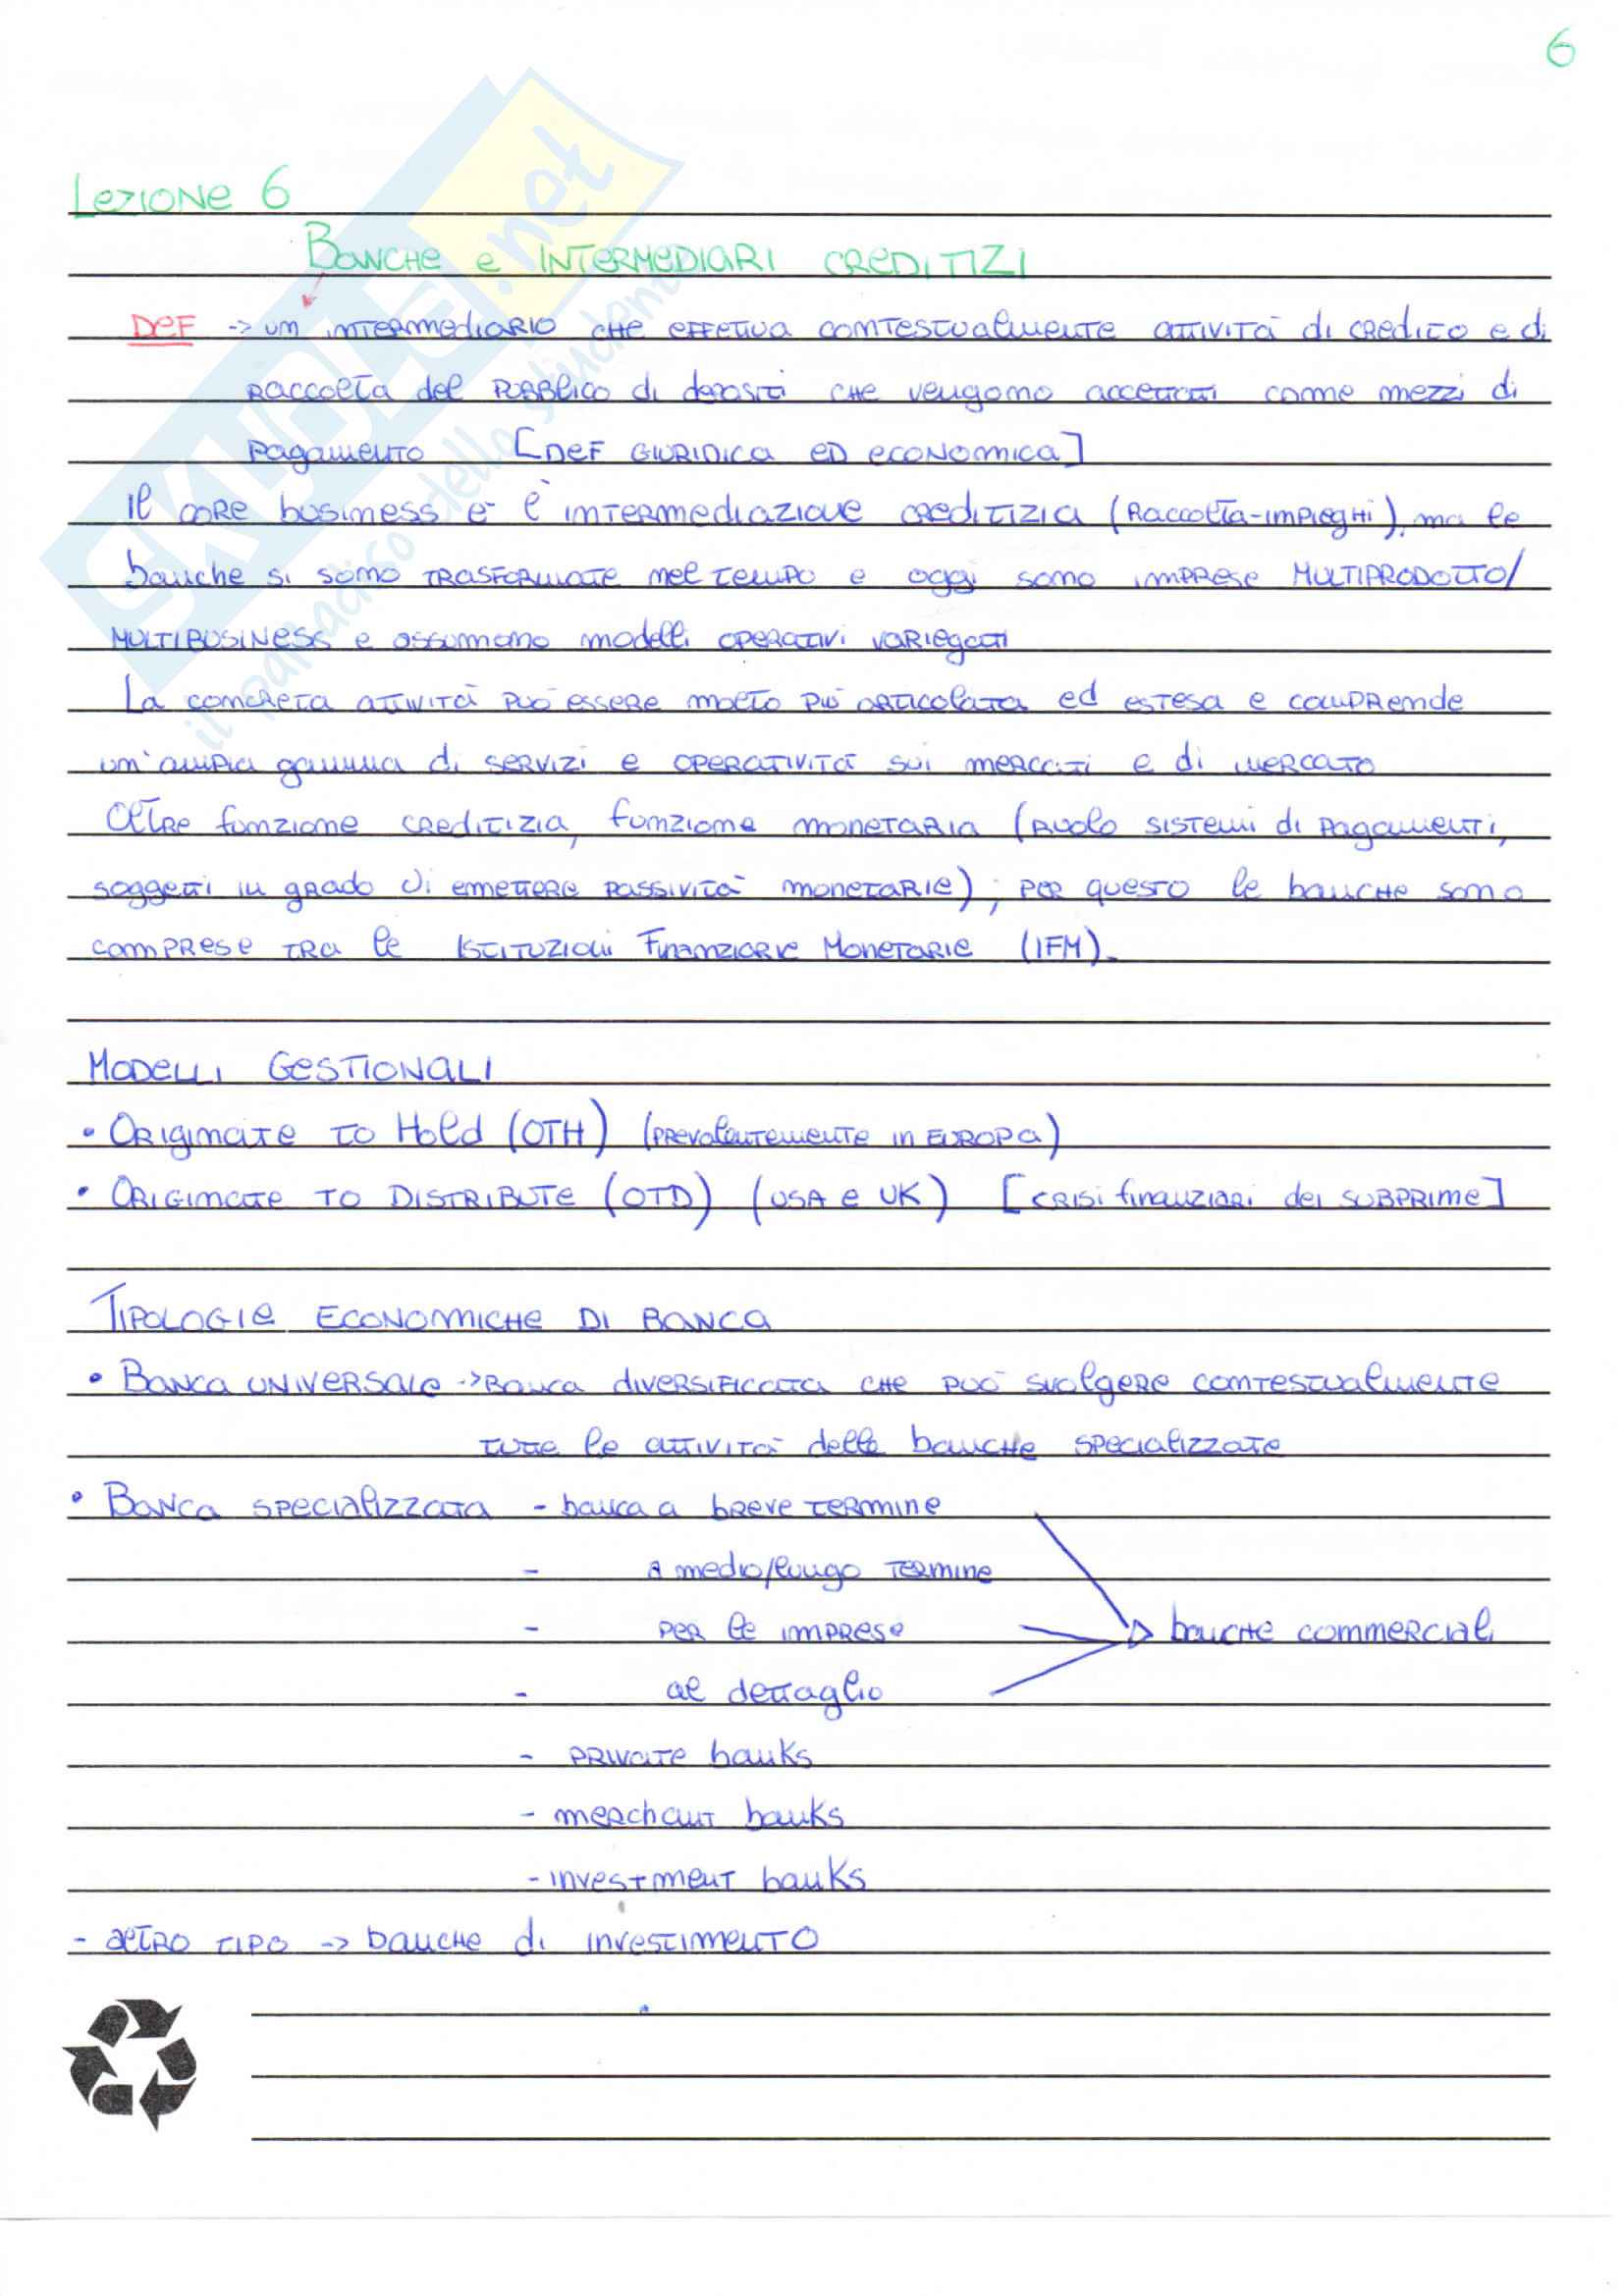 6
Lezione 6
Banche e intermediari creditizi
DEF -> un intermediario che effettua contestualmente attività di credito e di
raccolta del pubblico di depositi che vengono accettati come mezzi di
pagamento [DEF giuridica ed economica]
Il core business è l'intermediazione creditizia (raccolta-impieghi), ma le
banche si sono trasformate nel tempo e oggi sono imprese MULTIPRODOTTO/
MULTIBUSINESS e assumono modelli operativi variegati
La concreta attività può essere molto più articolata ed estesa e comprende
un'ampia gamma di servizi e operatività sui mercati e di mercato
Oltre funzione creditizia, funzione monetaria (ruolo sistemi di pagamenti,
soggetti in grado di emettere passività monetarie); per questo le banche sono
comprese tra le Istituzioni Finanziarie Monetarie (IFM).
MODELLI GESTIONALI
• Originate to Hold (OTH) (prevalentemente in EUROPA)
• Originate to Distribute (OTD) (USA e UK) [crisi finanziari dei subprime]
TIPOLOGIE ECONOMICHE DI BANCA
• Banca universale -> banca diversificata che può svolgere contestualmente
tutte le attività delle banche specializzate
• Banca specializzata - banca a breve termine
- a medio/lungo termine
- per le imprese -> banche commerciali
- al dettaglio
- private banks
- merchant banks
- investment banks
- altro tipo -> banche di investimento
SKUOLA.net
il paradiso dello studente